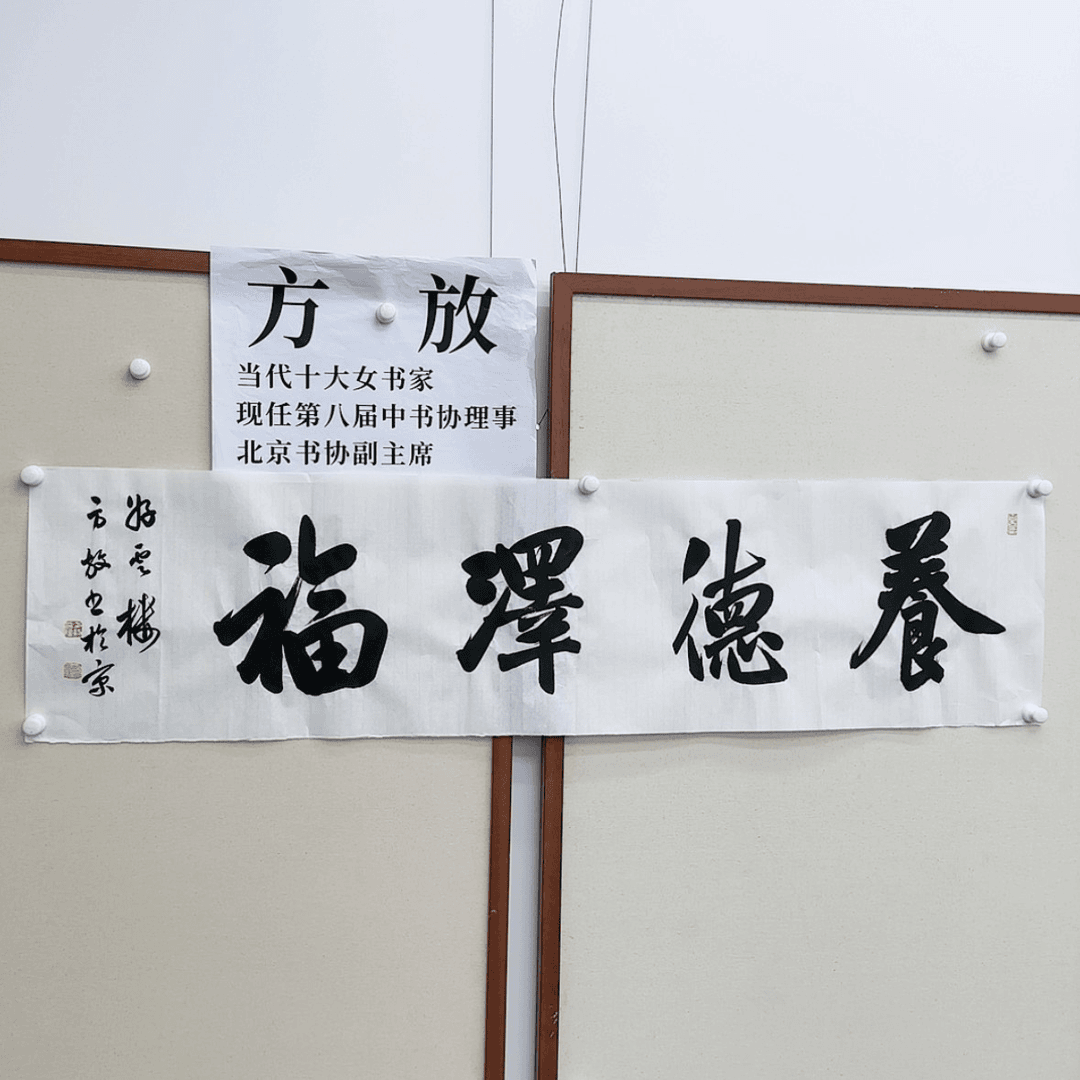 方 放
当代十大女书家
现任第八届中书协理事
北京书协副主席
養德澤福
好雲樓
方放书於京